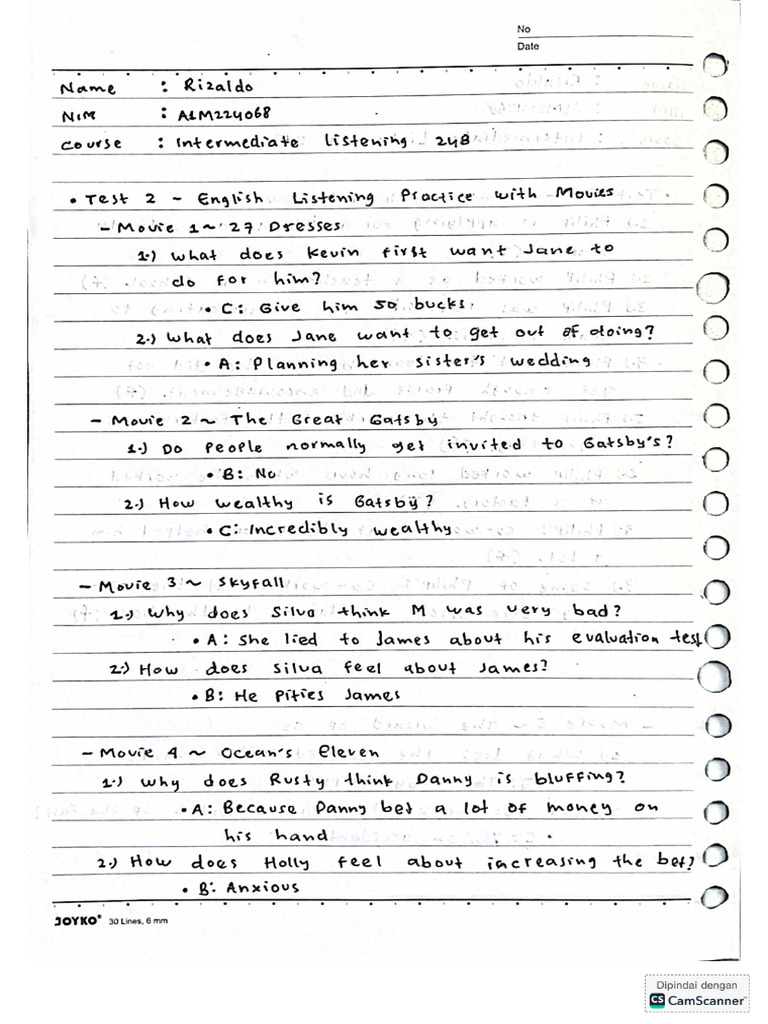 No
Date
Name : Rizaldo
NIM : A1M224068
Course : Intermediate Listening 24B
• Test 2 - English Listening Practice with Movies
- Movie 1 ~ 27 Dresses
1.) What does Kevin first want Jane to
do for him?
• C: Give him 50 bucks
2.) What does Jane want to get out of doing?
• A: Planning her sister's wedding
- Movie 2 ~ The Great Gatsby
1.) Do people normally get invited to Gatsby's?
• B: No
2.) How wealthy is Gatsby?
• C: Incredibly wealthy
- Movie 3 ~ Skyfall
1.) Why does Silva think M was very bad?
• A: She lied to James about his evaluation test
2.) How does Silva feel about James?
• B: He Pities James
- Movie 4 ~ Ocean's Eleven
1.) Why does Rusty think Danny is bluffing?
• A: Because Danny bet a lot of money on
his hand
2.) How does Holly feel about increasing the bet?
• B: Anxious
JOYKO® 30 Lines, 6 mm
Dipindai dengan
CS CamScanner